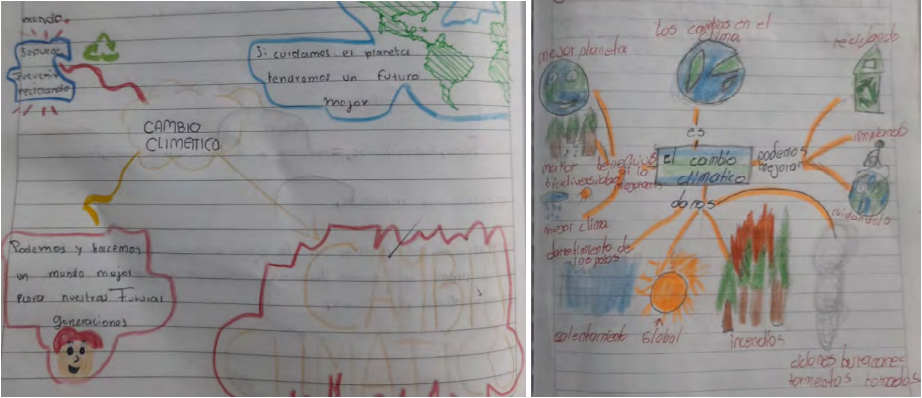 mundo.
Separar
Prevenir
reciclando
CAMBIO
CLIMETICO
Si cuidamos el planeta
tendremos un futuro
mejor
Podemos y hacemos
un mundo mejor
para nuestras Futuras
generaciones
CAMBI
CLIMATICO
los cambios en el
clima
mejor planeta
reciclando
es
el cambio
climatico
podemos
mejorar
cuidandolo
mayor
biodiversidad
beneficios
si lo
mejoramos
mejor clima
daños
derretimiento de
los polos
calentamiento Global
incendios
huracanes
tormentas tornados